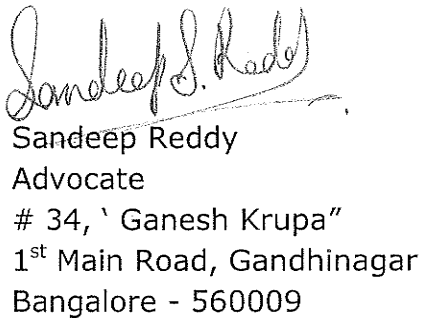 Sandeep S. Reddy
Sandeep Reddy
Advocate
# 34, ‘ Ganesh Krupa”
1st Main Road, Gandhinagar
Bangalore - 560009